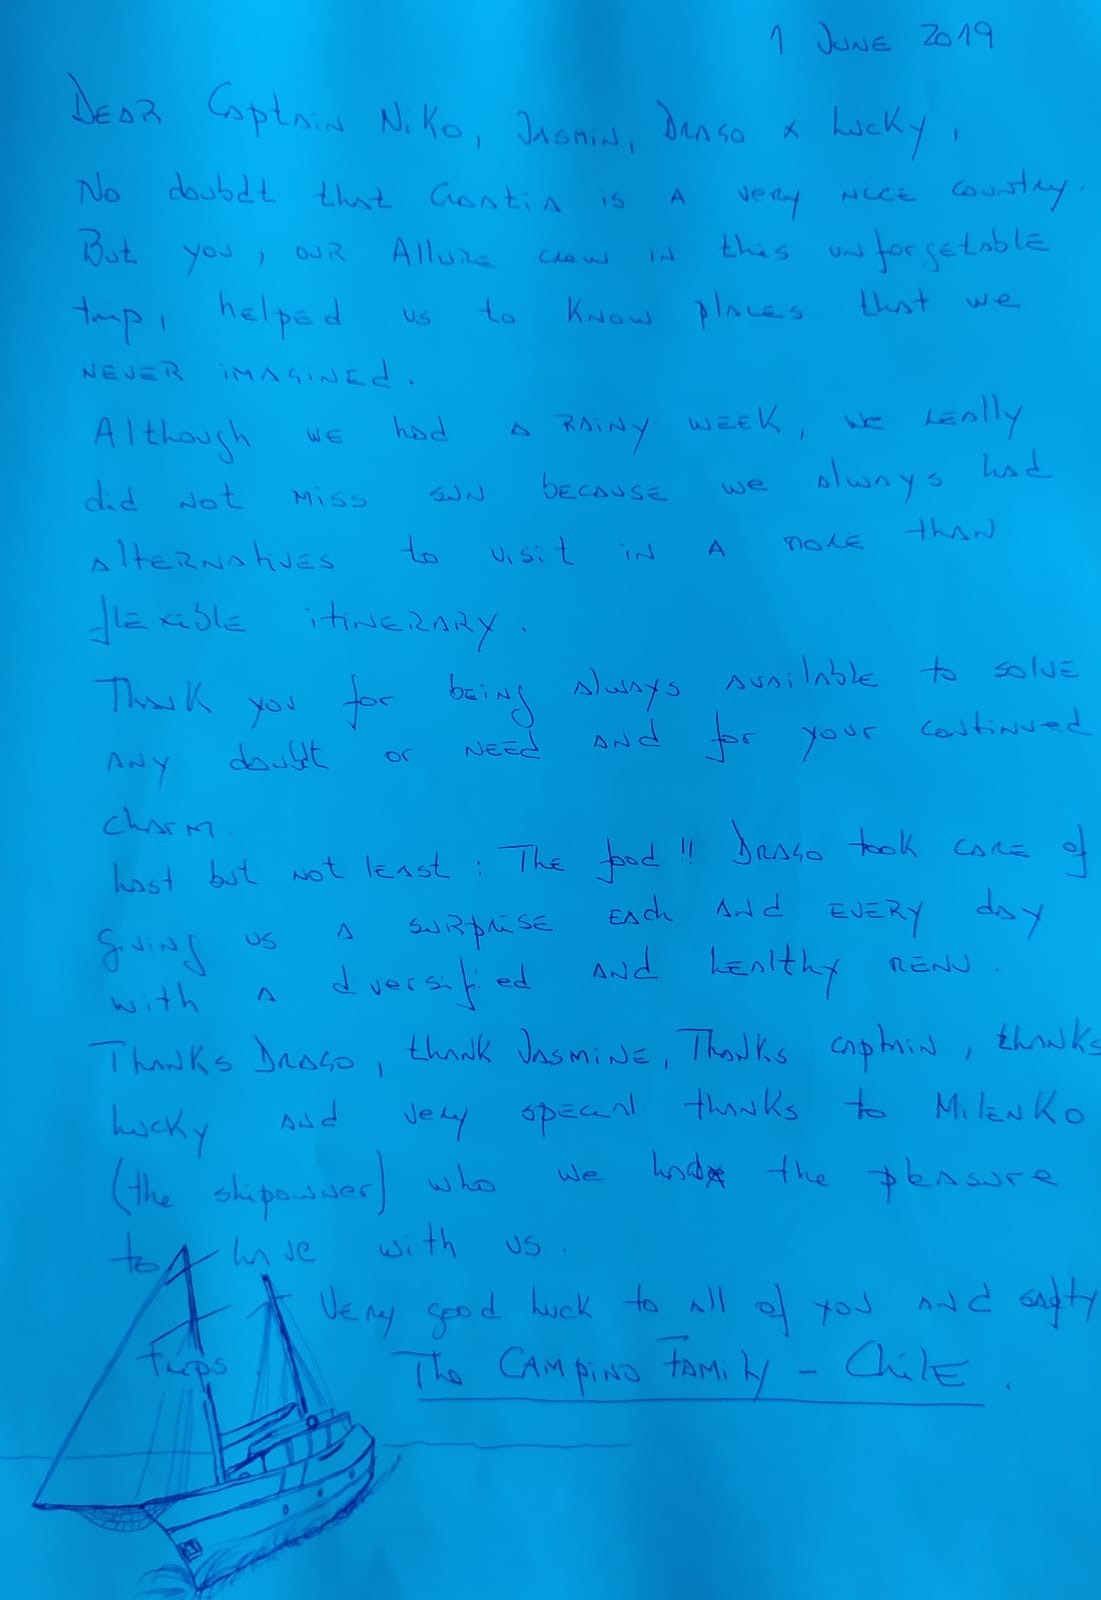 1 JUNE 2019
DEAR Captain NiKo, JASMIN, DRAGO & Lucky,
No doubdt that Croatia is A very NICE country.
But you, OUR Allure crew in this unforgetable
trip, helped us to KNOW places that we
NEVER iMAGiNEd.
Although WE had A RAiNy WEEK, WE REAlly
did Not Miss SUN BECAUSE we always had
AlTERNATIVES to visit iN A MORE than
flExiblE itiNERARY.
Thank you for being always AvAilABlE to solve
ANY doubt or NEEd AND for your continued
charm.
Last but NOT lEAst : The food!! DRAGO took CARE of
Giving us A SURPRISE EAch AND EVERY day
with A diversified AND hEAlthy MENU.
THANKS DRAGO, thank JASMiNE, Thanks captain, thanks
Lucky AND very special thanks to MilENKO
(the shipowner) who we had the pleasure
to have with us.
Very good luck to all of you AND
Trips
The CAMPiNO FAMily - ChilE.